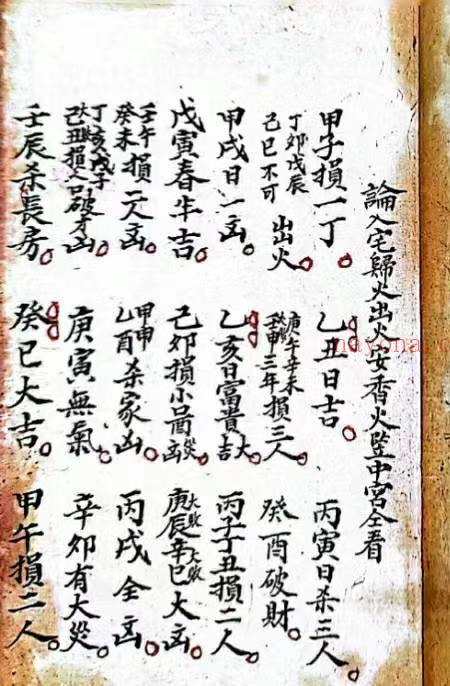 論入宅歸火出火安香火竪中宮仝看
甲子損一丁。乙丑日吉。丙寅日杀三人。
丁卯戊辰己巳不可出火 庚午辛未壬申三年損三人。癸酉破財。
甲戌日一凶。乙亥日富貴大吉 丙子丁丑損二人。
戊寅春牛吉。己卯損小災凶 庚辰大敗辛巳大敗大凶。
壬午癸未損一人凶。甲申乙酉杀家凶。丙戌全凶
丁亥戊子己丑損人口破才凶 庚寅無氣。辛卯有大災。
壬辰杀長房。癸巳大吉。甲午損二人。
nayona.c